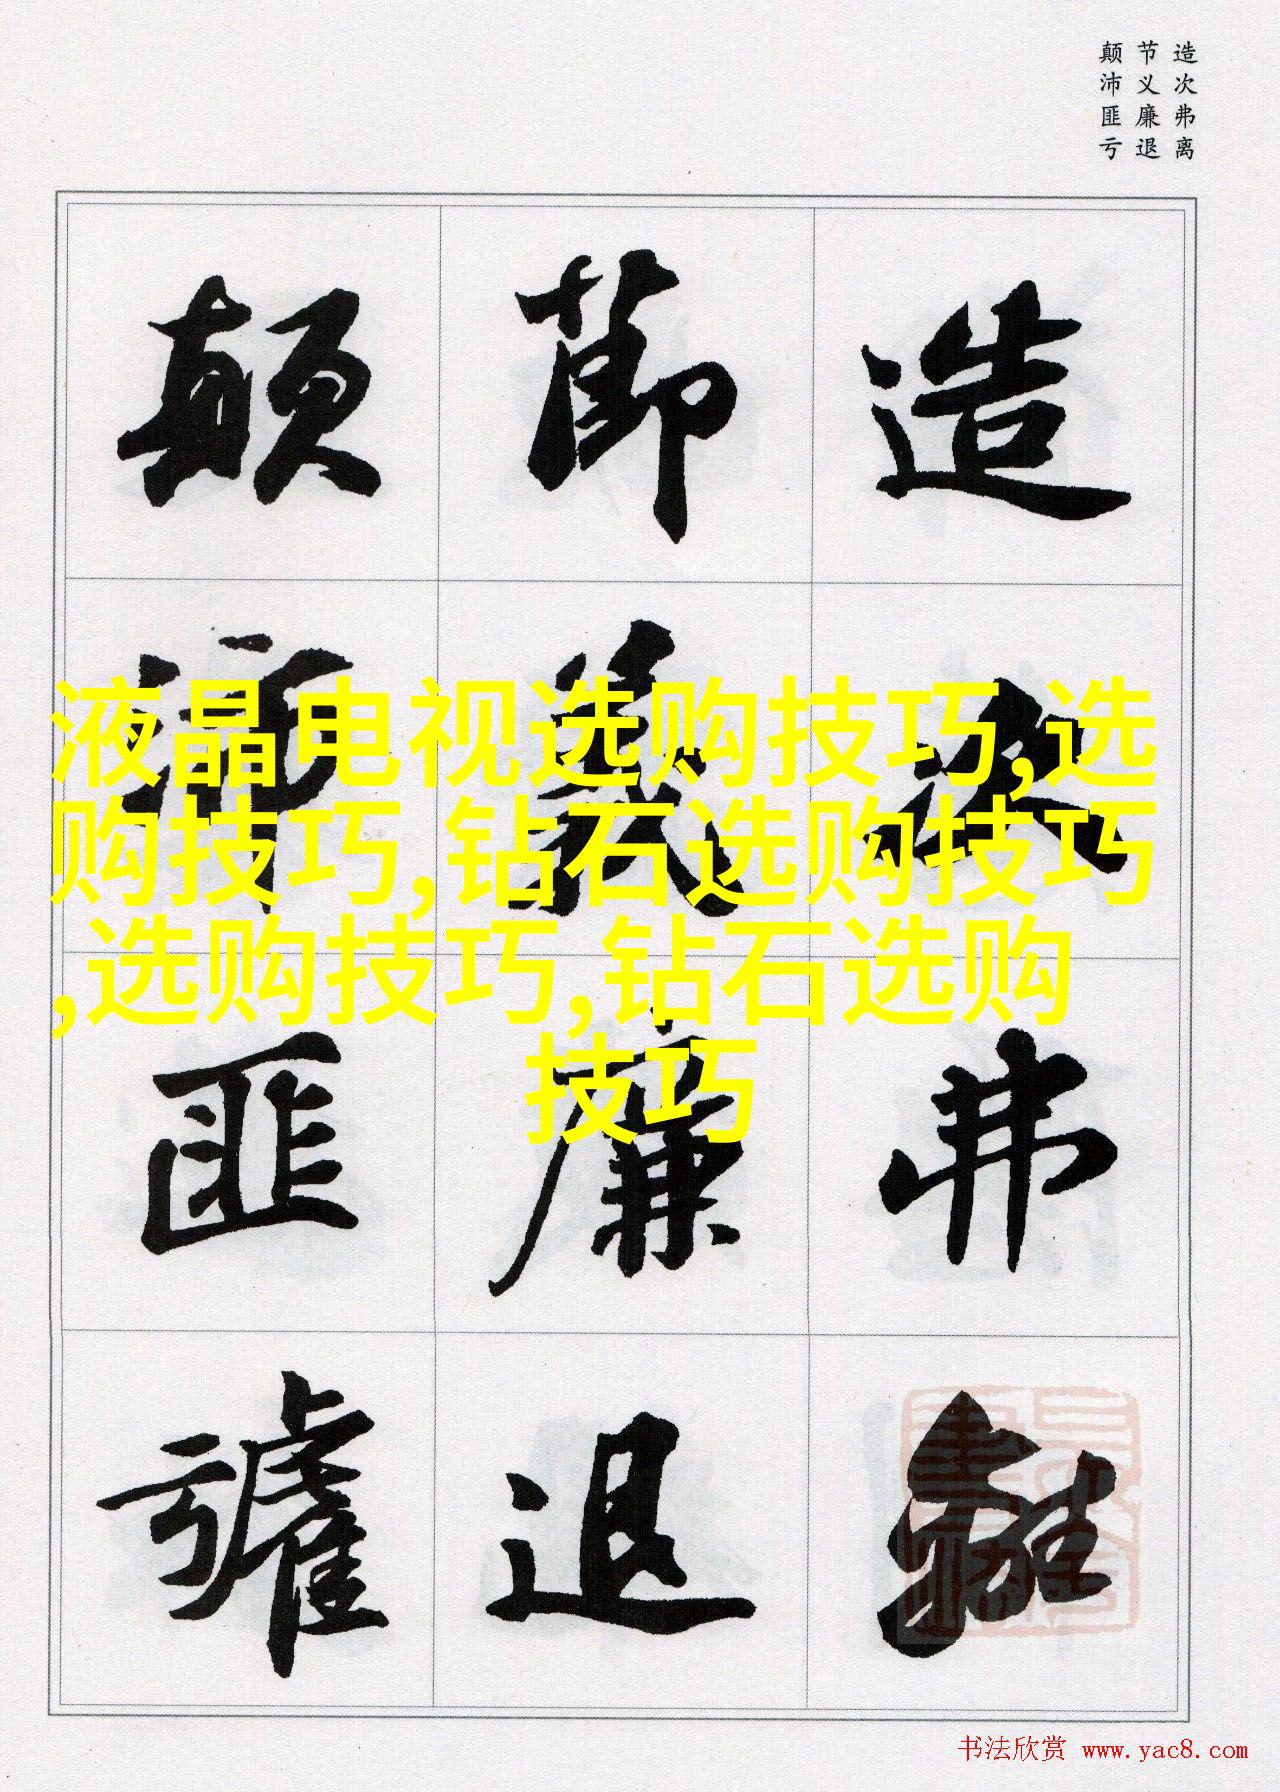 造次弗离
节义廉退
颠沛匪亏
造次弗離
節義廉退
顛沛匪虧
液晶电视选购技巧,选
购技巧,钻石选购技巧
,选购技巧,钻石选购
技巧
书法欣赏 www.yac8.com